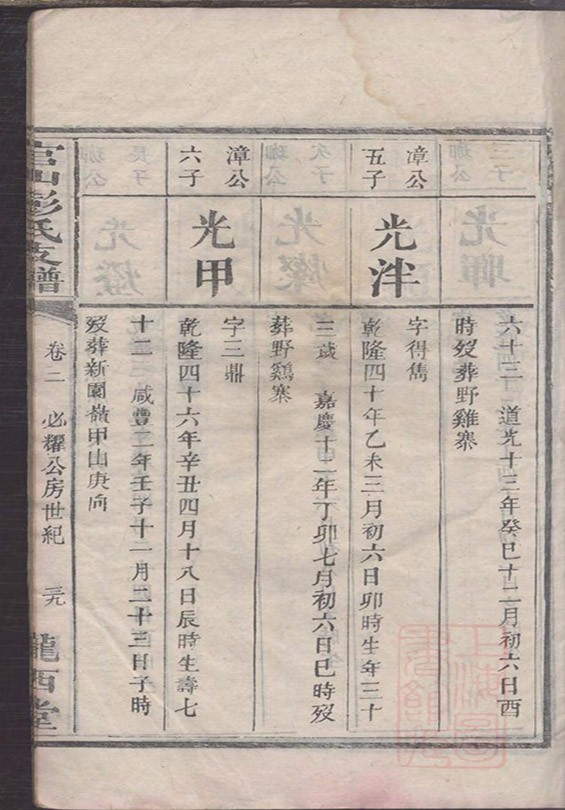 六十三　道光十三年癸巳十二月初六日酉
時歿葬野雞寨
漳公
五子
光泮
字得雋
乾隆四十年乙未三月初六日卯時生年三十
三歲　嘉慶十二年丁卯七月初六日巳時歿
葬野鷄寨
漳公
六子
光甲
字三鼎
乾隆四十六年辛丑四月十八日辰時生壽七
十二　咸豐二年壬子十一月二十三日子時
歿葬新園嶺甲山庚向
官山彭氏支譜
卷二　必耀公房世紀　三九
隴西堂